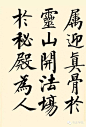 屬迎真骨於
靈山開法場
於秘殿為人